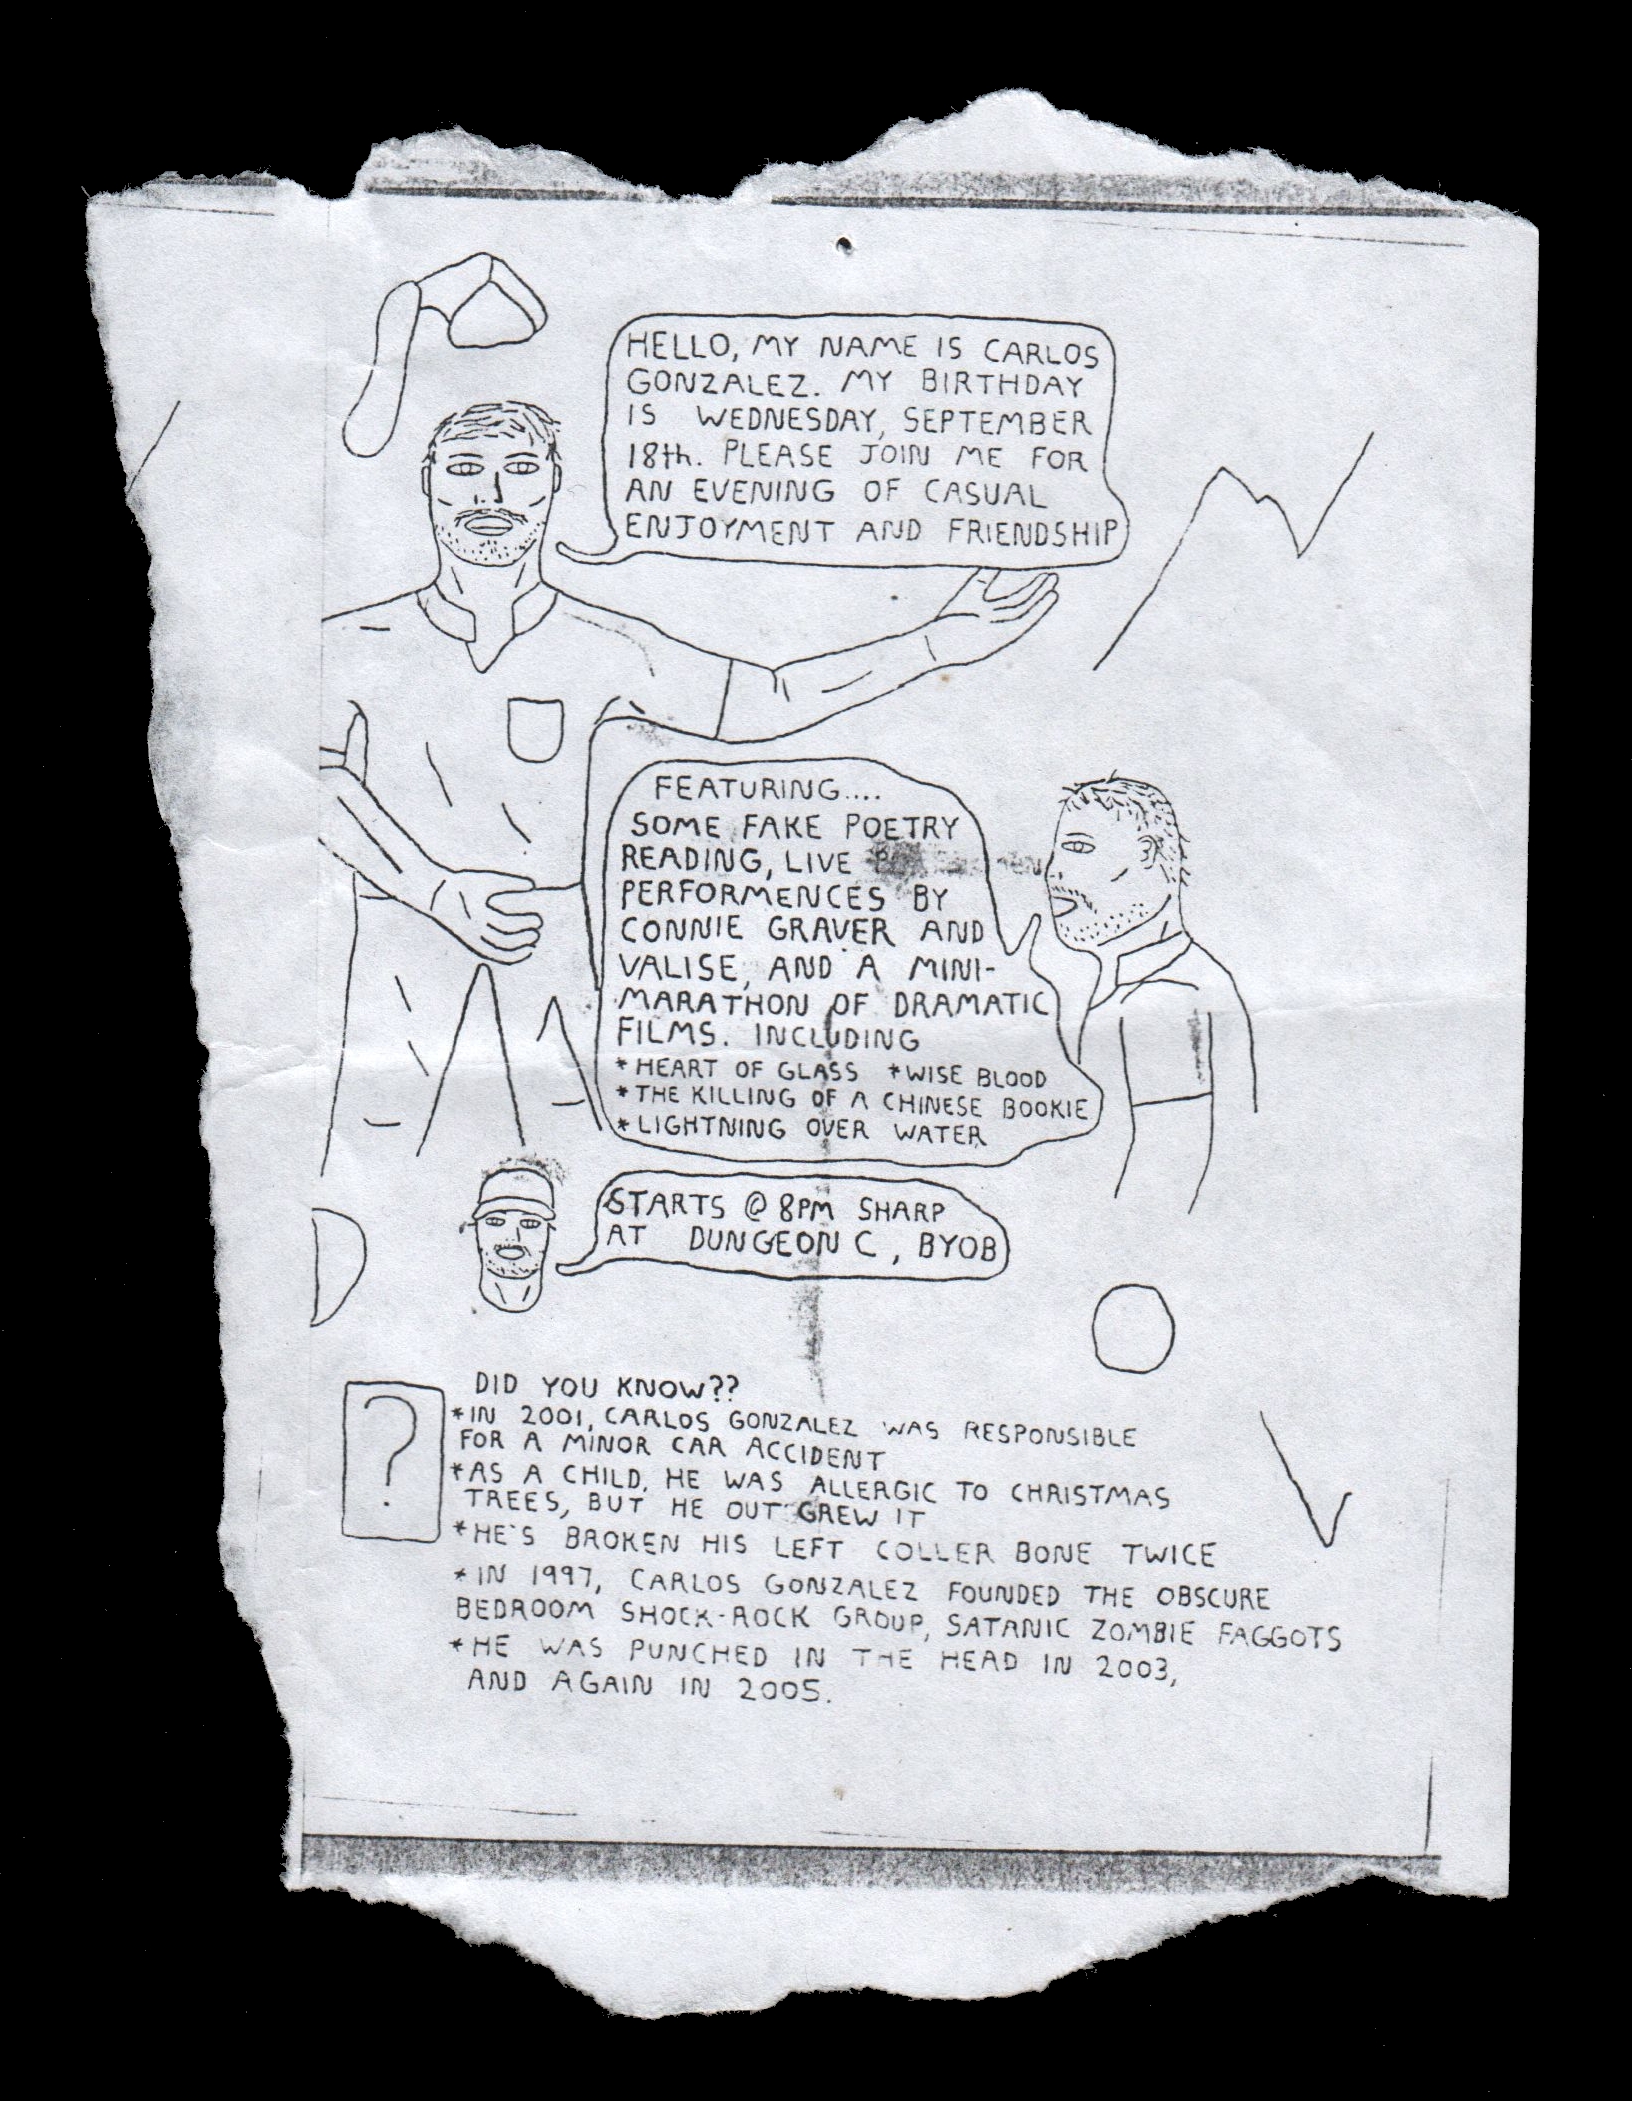 HELLO, MY NAME IS CARLOS
GONZALEZ. MY BIRTHDAY
IS WEDNESDAY, SEPTEMBER
18th. PLEASE JOIN ME FOR
AN EVENING OF CASUAL
ENJOYMENT AND FRIENDSHIP
FEATURING....
SOME FAKE POETRY
READING, LIVE
PERFORMENCES BY
CONNIE GRAVER AND
VALISE, AND A MINI-
MARATHON OF DRAMATIC
FILMS. INCLUDING
*HEART OF GLASS *WISE BLOOD
*THE KILLING OF A CHINESE BOOKIE
*LIGHTNING OVER WATER
STARTS @ 8PM SHARP
AT DUNGEON C, BYOB
?
DID YOU KNOW??
*IN 2001, CARLOS GONZALEZ WAS RESPONSIBLE
FOR A MINOR CAR ACCIDENT
*AS A CHILD, HE WAS ALLERGIC TO CHRISTMAS
TREES, BUT HE OUT GREW IT
*HE'S BROKEN HIS LEFT COLLER BONE TWICE
*IN 1997, CARLOS GONZALEZ FOUNDED THE OBSCURE
BEDROOM SHOCK-ROCK GROUP, SATANIC ZOMBIE FAGGOTS
*HE WAS PUNCHED IN THE HEAD IN 2003,
AND AGAIN IN 2005.